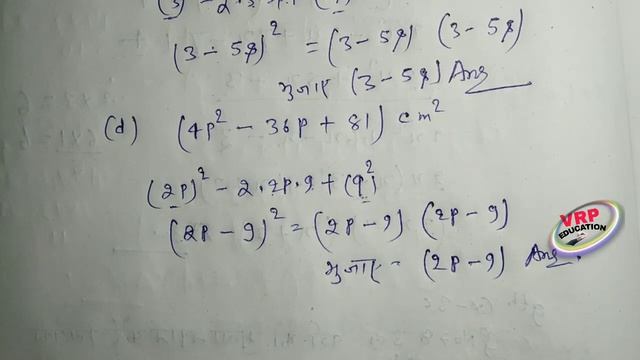 (3 - 5p)² = (3 - 5p) (3 - 5p)
भुजाए (3 - 5p) Ans
(d) (4p² - 36p + 81) cm²
(2p)² - 2.2p.9 + (9²)
(2p - 9)² = (2p - 9) (2p - 9)
भुजाए = (2p - 9) Ans.
VRP
EDUCATION